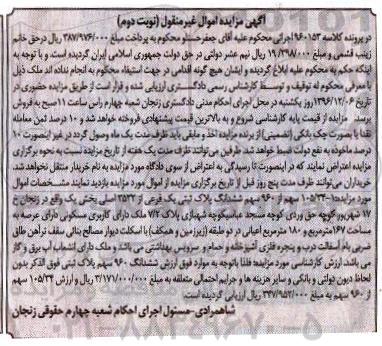 آگهی مزایده اموال غیرمنقول (نوبت دوم)
در پرونده کلاسه ۹۶۰۱۵۳ اجرائی محکوم علیه آقای جعفر حسنلو محکوم به پرداخت مبلغ ۳۸۷/۹۷۶/۰۰۰ ریال در حق خانم
زینب قشمی و مبلغ ۱۹/۳۹۸/۰۰۰ ریال نیم عشر دولتی در حق دولت جمهوری اسلامی ایران گردیده است. و با توجه به
اینکه حکم به محکوم علیه ابلاغ گردیده و ایشان هیچ گونه اقدامی در جهت استیفاء محکوم به انجام نداده اند ملک ذیل
با معرفی محکوم له توقیف و توسط کارشناس رسمی دادگستری ارزیابی شده و قرار است از طریق مزایده حضوری در
تاریخ ۱۳۹۶/۱۲/۰۶ روز یکشنبه در محل اجرای احکام مدنی دادگستری زنجان شعبه چهارم راس ساعت ۱۱ صبح به فروش
برسد. مزایده از قیمت پایه کارشناسی شروع و به بالاترین قیمت پیشنهادی فروخته خواهد شد و ۱۰ درصد ثمن معامله
نقدا یا بصورت چک بانکی (تضمینی) از برنده مزایده اخذ و مابقی باید ظرف مدت یک ماه وصول گردد در غیر اینصورت ۱۰
درصد ماخوذه به نفع دولت ضبط خواهد شد. طرفین می توانند ظرف مدت یک هفته از تاریخ مزایده نسبت به نحوه برگزاری
مزایده اعتراض نمایند که در اینصورت تا رسیدگی به اعتراض از سوی دادگاه مورد مزایده به نام خریدار منتقل نخواهد شد.
خریداران می توانند ظرف مدت پنج روز قبل از تاریخ برگزاری مزایده از اموال مورد مزایده بازدید نمایند مشخصات اموال
مورد مزایده: ۱- ۱۰۵/۳۳ سهم از ۹۶۰ سهم ششدانگ پلاک ثبتی یک فرعی از ۲۵۳۲ اصلی بخش یک واقع در زنجان خ
۱۷ شهریور کوچه حق وردی کوچه مسجد عباسیکوچه شهبازی پلاک ۷/۲ ملک دارای کاربری مسکونی دارای عرصه به
مساحت ۱۶۷ مترمربع و ۱۸۰ مترمربع اعیانی در دو طبقه (زیرزمین و همکف) با اسکلت دیوار مصالح بنائی سقف تیرآهن طاق
ضربی بام آسفالت درب و پنجره فلزی آشپزخانه و حمام و سرویس بهداشتی می باشد و ملک دارای انشعاب آب برق و گاز
می باشد. ارزش کارشناسی مورد مزایده: فلذا باتوجه به موارد فوق ارزش ششدانگ ۹۶۰ سهم پلاک ثبتی فوق الذکر بدون
لحاظ دیون دولتی و بانکی و سایر هزینه ها و جرایم احتمالی متعلقه به مبلغ ۳/۱۷۷/۰۰۰/۰۰۰ ریال و ارزش ۱۰۵/۳۳ سهم
از ۹۶۰ سهم به مبلغ ۳۴۷/۹۵۲/۰۰۰ ریال ارزیابی گردیده است.
شاهمرادی - مسئول اجرای احکام شعبه چهارم حقوقی زنجان